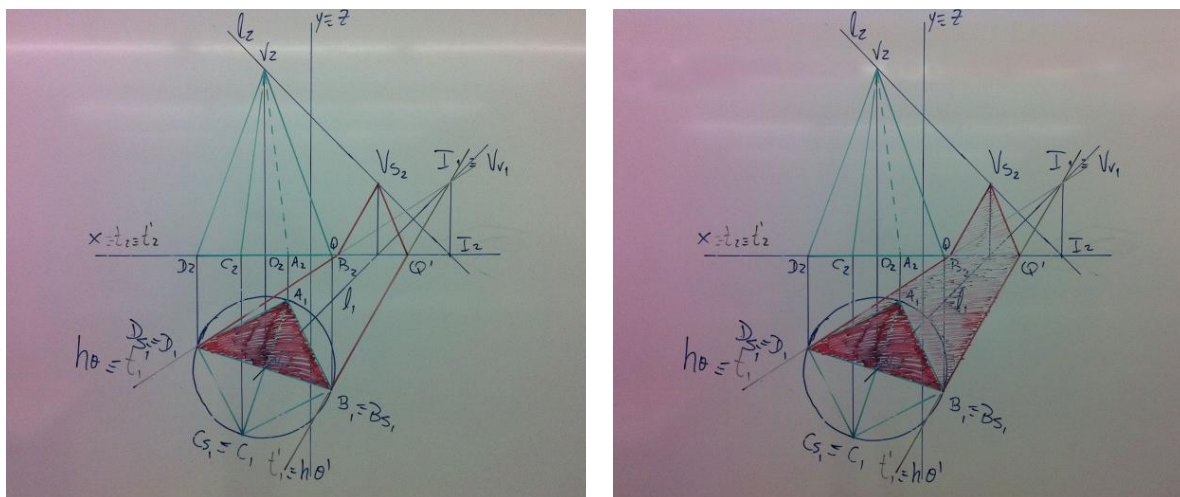 l₂
y≡z
V₂
Vs₂
I₁≡Vv₁
x≡t₂≡t'₂
D₂
C₂
O₂
A₂
Q
B₂
Q'
I₂
A₁
l₁
Ds₁≡D₁
hθ≡t₁
B₁≡Bs₁
Cs₁≡C₁
t'₁≡hθ'
l₂
y≡z
V₂
Vs₂
I₁≡Vv₁
x≡t₂≡t'₂
D₂
C₂
O₂
A₂
Q
B₂
Q'
I₂
A₁
l₁
Ds₁≡D₁
hθ≡t₁
B₁≡Bs₁
Cs₁≡C₁
t'₁≡hθ'